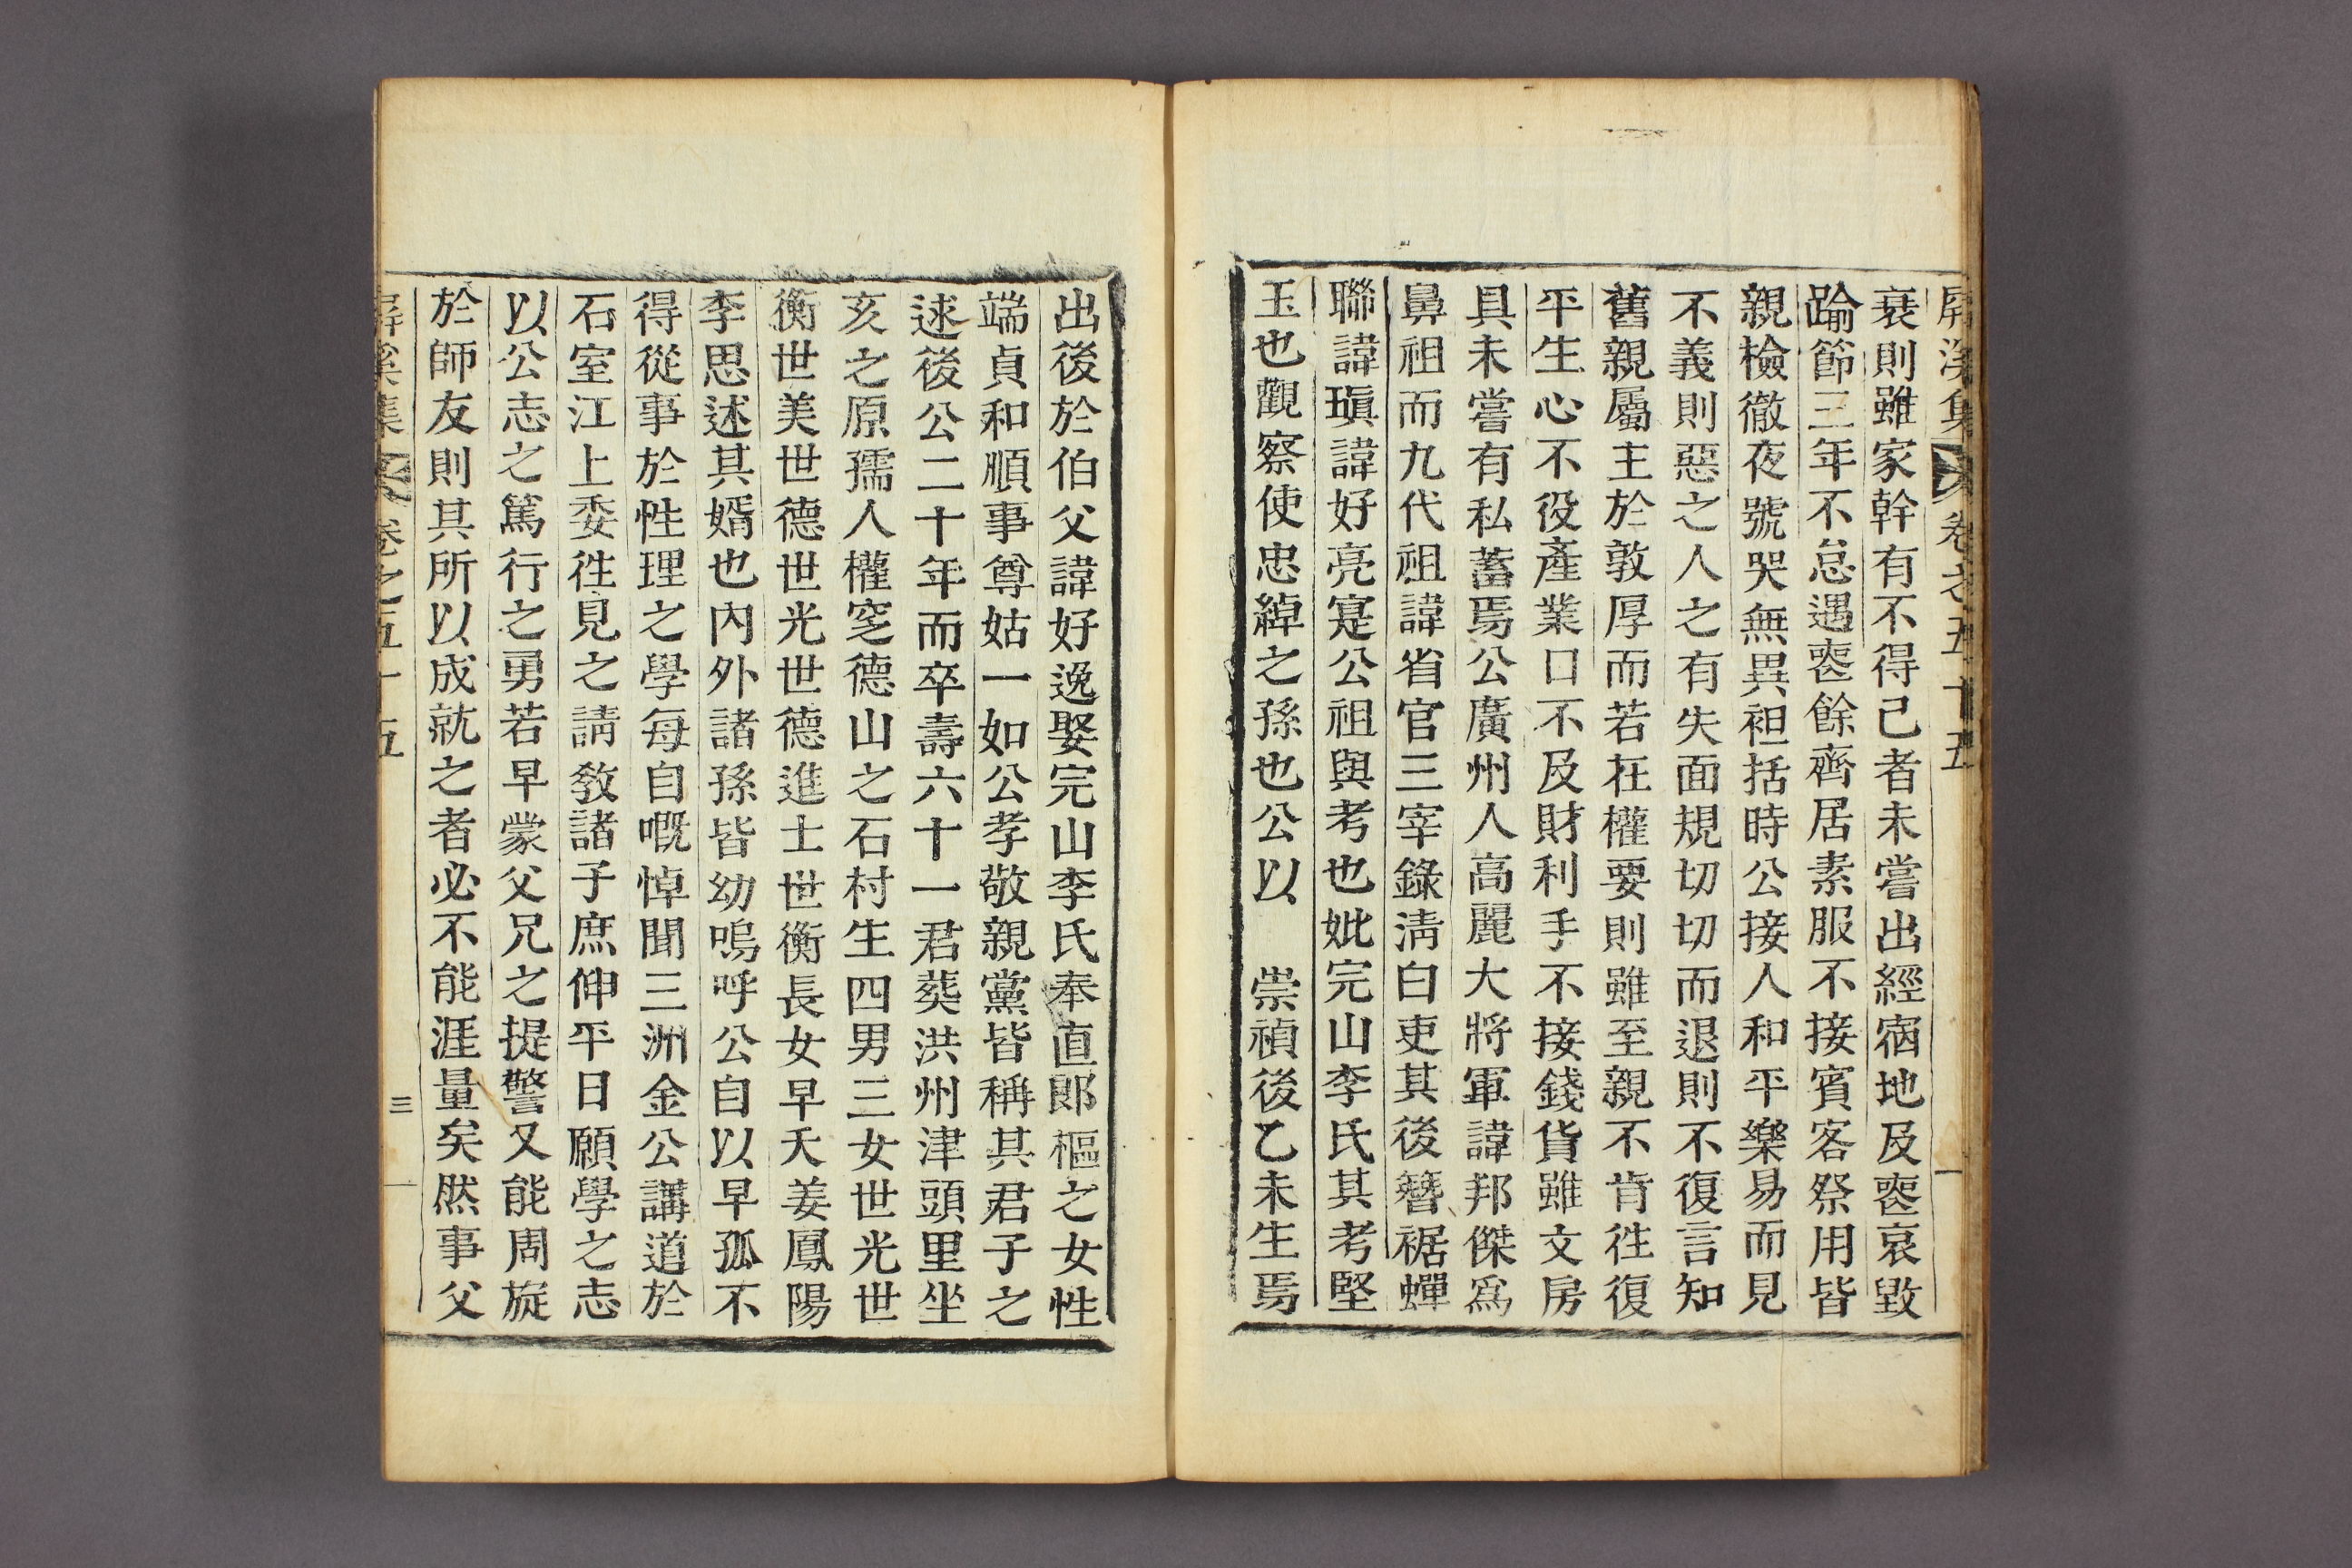 屛溪集 卷之五十五
衰則雖家幹有不得已者未嘗出經宿地及喪哀毀
踰節三年不怠遇喪餘齊居素服不接賓客祭用皆
親檢徹夜號哭無異袒括時公接人和平樂易而見
不義則惡之人之有失面規切切而退則不復言知
舊親屬主於敦厚而若在權要則雖至親不肯徃復
平生心不役產業口不及財利手不接錢貨雖文房
具未嘗有私蓄焉公廣州人高麗大將軍諱邦傑爲
鼻祖而九代祖諱省官三宰錄淸白吏其後簪裾蟬
聯諱瑱諱好亮寔公祖與考也妣完山李氏其考堅
玉也觀察使忠綽之孫也公以 崇禎後乙未生焉
出後於伯父諱好逸娶完山李氏奉直郞樞之女性
端貞和順事尊姑一如公孝敬親黨皆稱其君子之
逑後公二十年而卒壽六十一君葬洪州津頭里坐
亥之原孺人權窆德山之石村生四男三女世光世
衡世美世德世光世德進士世衡長女早夭姜鳳陽
李思述其婿也內外諸孫皆幼嗚呼公自以早孤不
得從事於性理之學每自嘅悼聞三洲金公講道於
石室江上委徃見之請敎諸子庶伸平日願學之志
以公志之篤行之勇若早蒙父兄之提警又能周旋
於師友則其所以成就之者必不能涯量矣然事父
屛溪集 卷之五十五 三